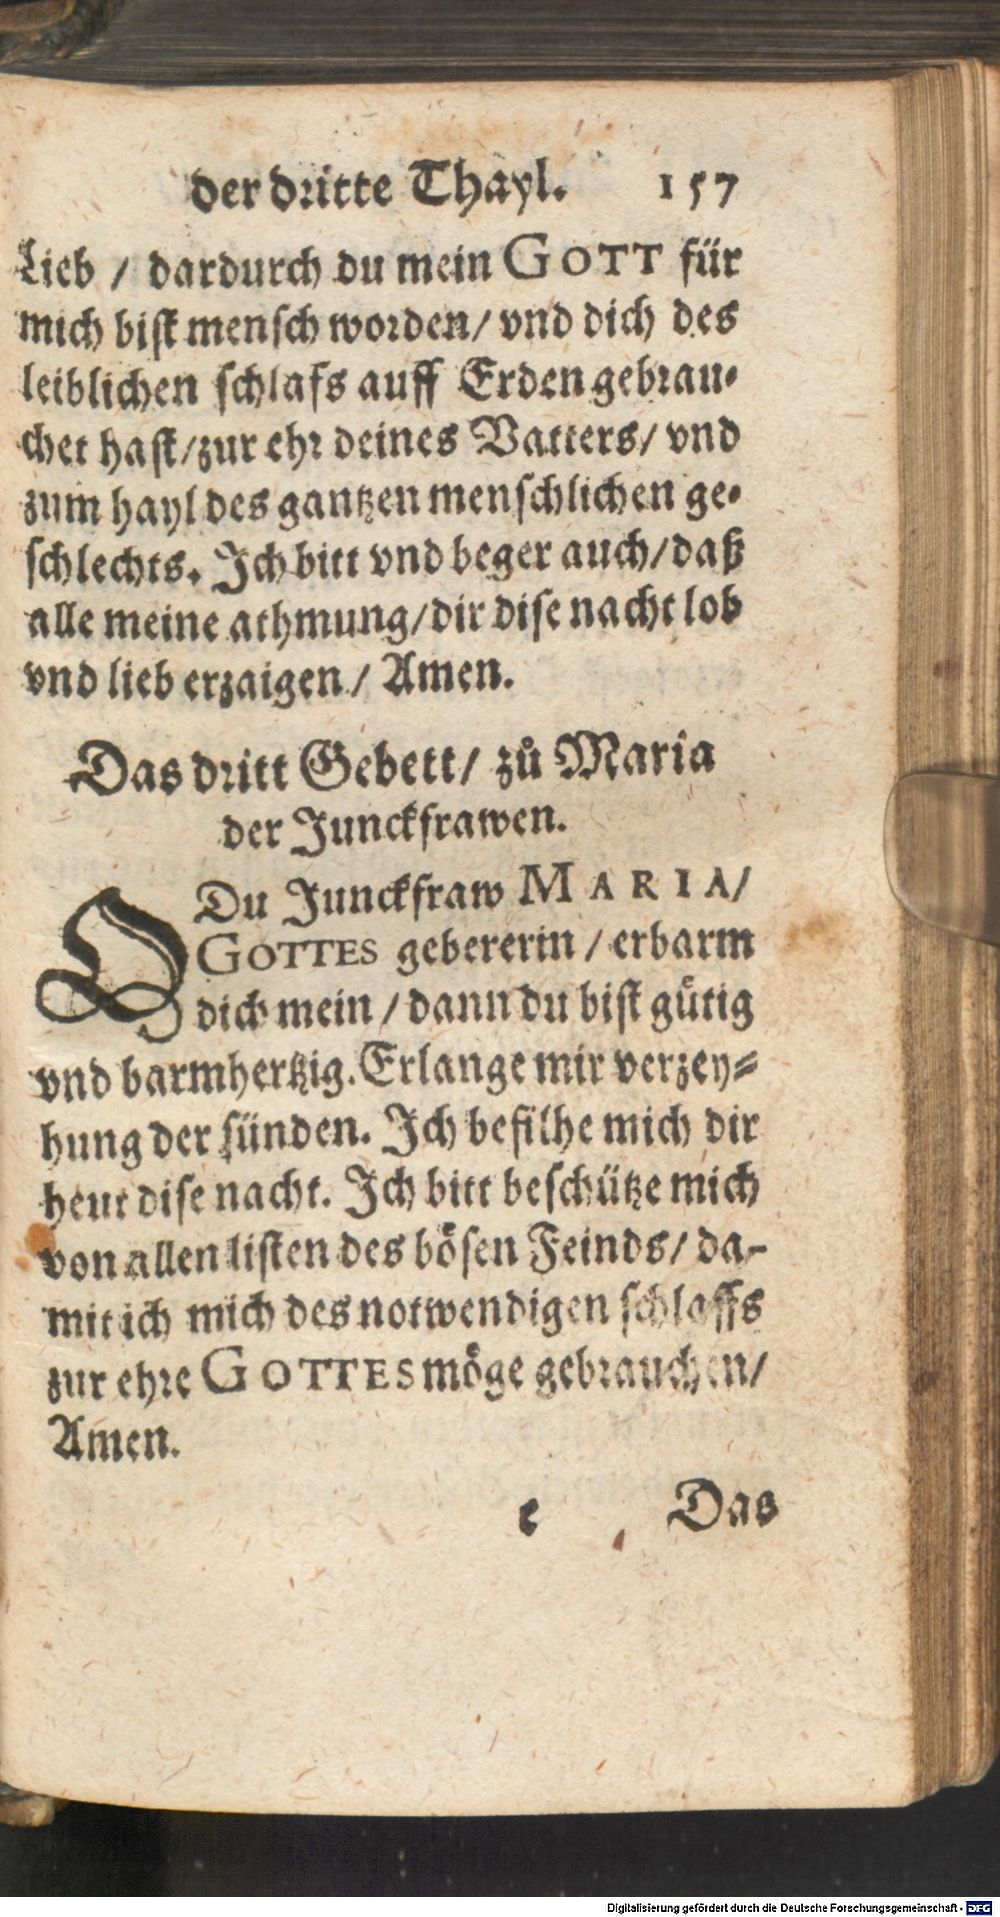 der dritte Thayl. 157
Lieb / dardurch du mein GOTT für
mich bist mensch worden/ vnd dich des
leiblichen schlafs auff Erden gebrau-
chet hast/zur ehr deines Vatters/ vnd
zum hayl des gantzen menschlichen ge-
schlechts. Ich bitt vnd beger auch/daß
alle meine athmung/dir dise nacht lob
vnd lieb erzaigen / Amen.
Das dritt Gebett/ zů Maria
der Junckfrawen.
O Du Junckfraw MARIA/
GOTTES gebererin / erbarm
dich mein / dann du bist gütig
vnd barmhertzig. Erlange mir verzey-
hung der sünden. Ich befilhe mich dir
heut dise nacht. Ich bitt beschütze mich
von allen listen des bösen Feinds/ da-
mit ich mich des notwendigen schlaffs
zur ehre GOTTES möge gebrauchen/
Amen.
e Das
Digitalisierung gefördert durch die Deutsche Forschungsgemeinschaft - DFG